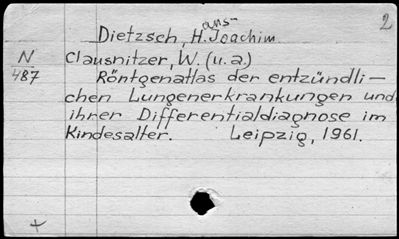 2
ans-
Dietzsch, H. Joachim.
N Clausnitzer, W. (u. a.)
487 Röntgenatlas der entzündli-
chen Lungenerkrankungen und
ihrer Differentialdiagnose im
Kindesalter. Leipzig, 1961.
+